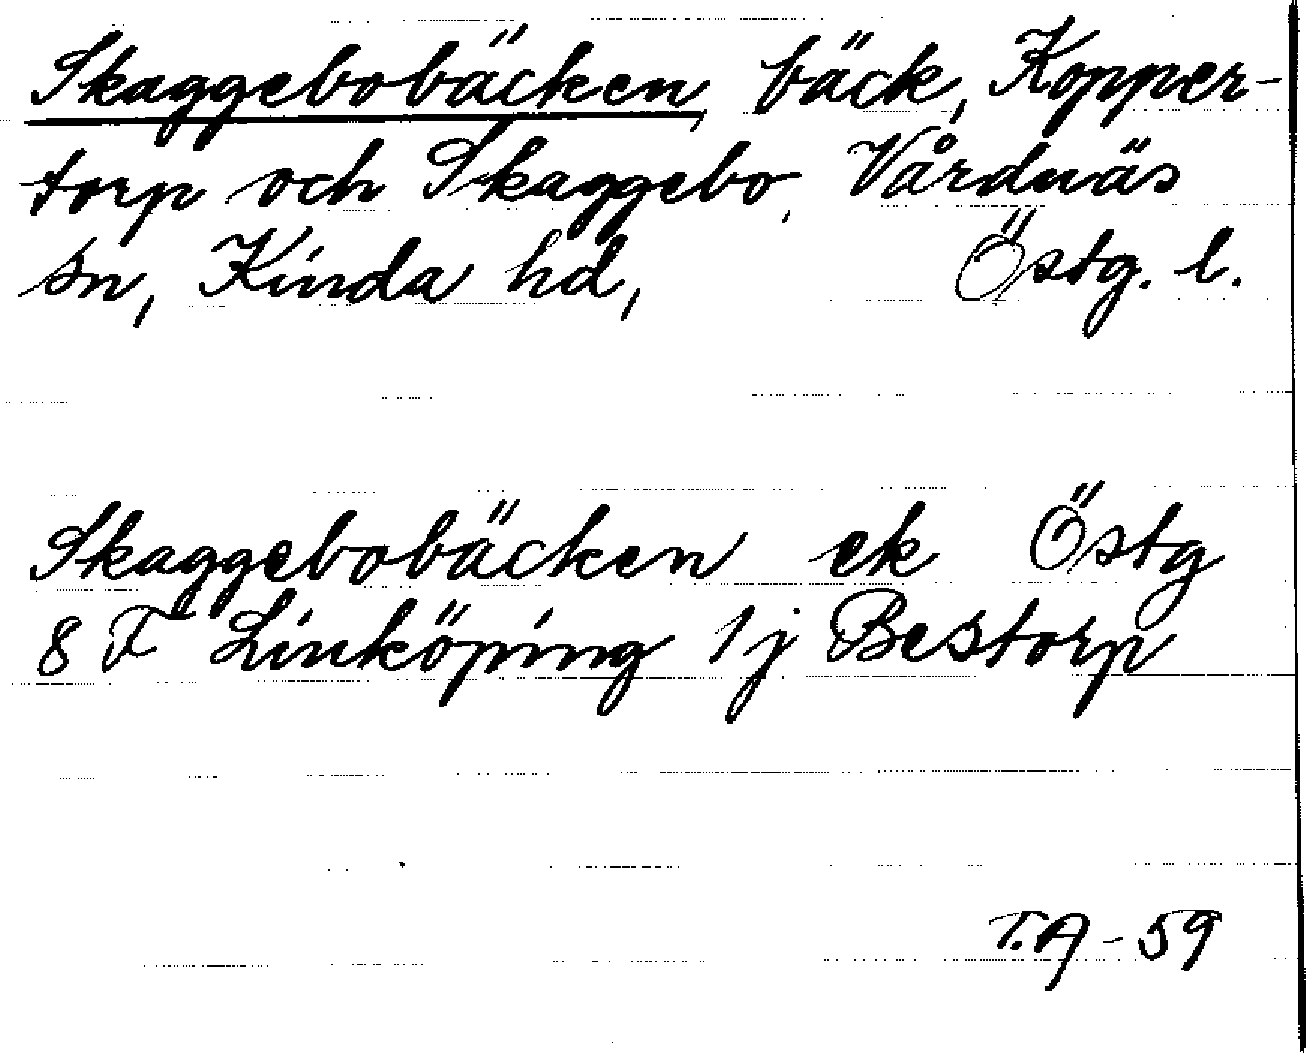 Skaggebobäcken, bäck, Kopper-
torp och Skaggebo, Vårdnäs
sn, Kinda hd, Östg. l.
Skaggebobäcken ek Östg
8 F Linköping 1j Bestorp
T.A - 59